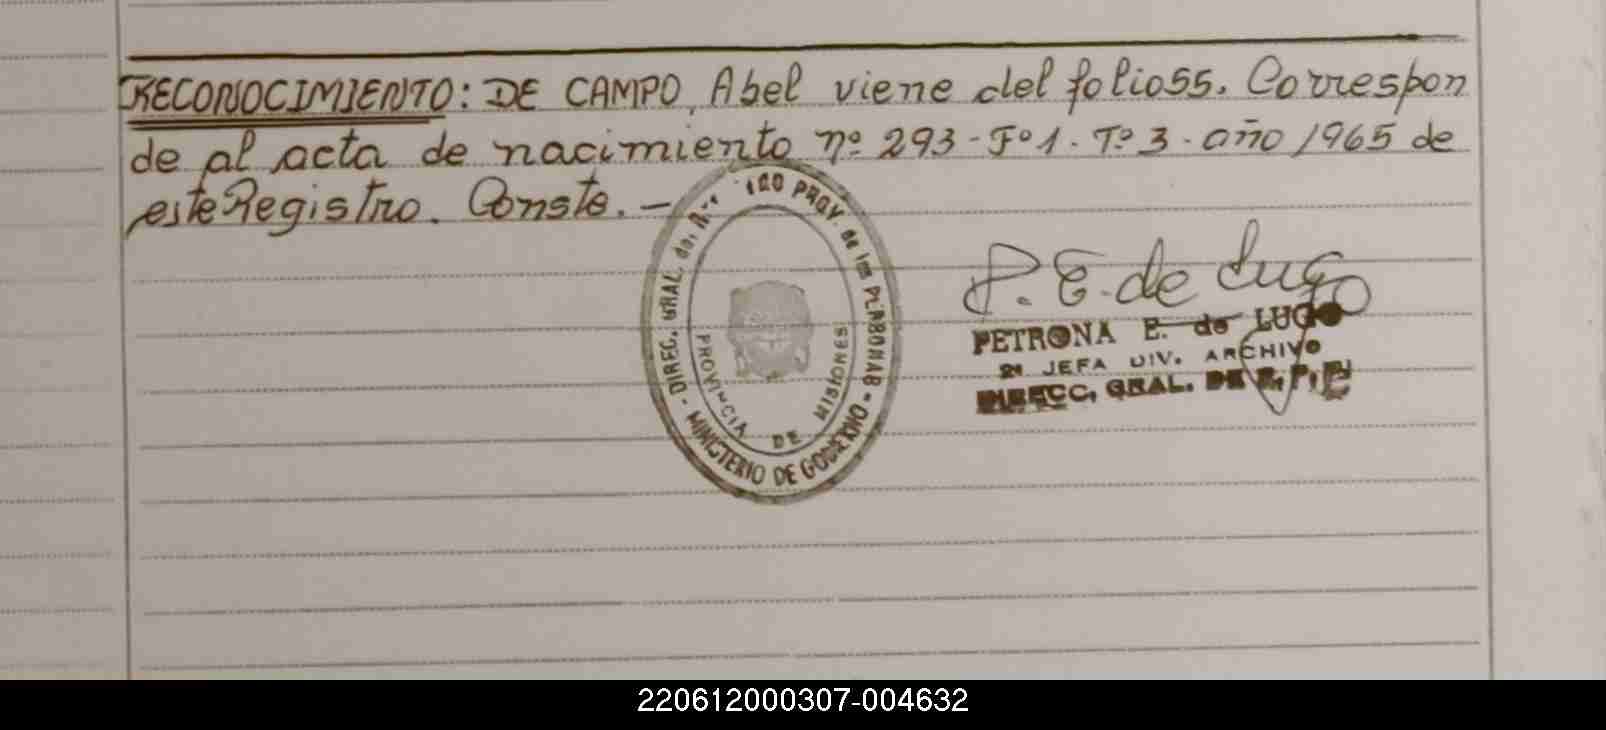 RECONOCIMIENTO: DE CAMPO, Abel viene del folio 55. Correspon
de al acta de nacimiento nº 293 - Fº 1 - Tº 3 - año 1965 de
este Registro. Conste. —
P. E. de Lugo
PETRONA E. de LUGO
2ª JEFA DIV. ARCHIVO
DIRECC. GRAL. DE R. P. P.
DIREC. GRAL. del PROV. de las PERSONAS - MINISTERIO DE GOBIERNO -
PROVINCIA DE MISIONES
220612000307-004632